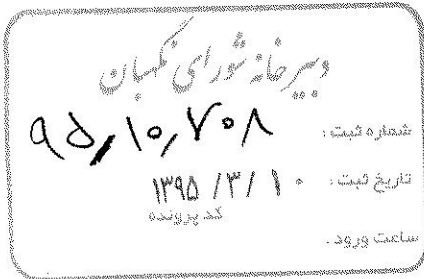 دبیرخانه شورای نگهبان
شماره ثبت: ۹۵/۱۰/۷۰۸
تاریخ ثبت: ۱۳۹۵/۳/۱۰
کد پرونده
ساعت ورود: